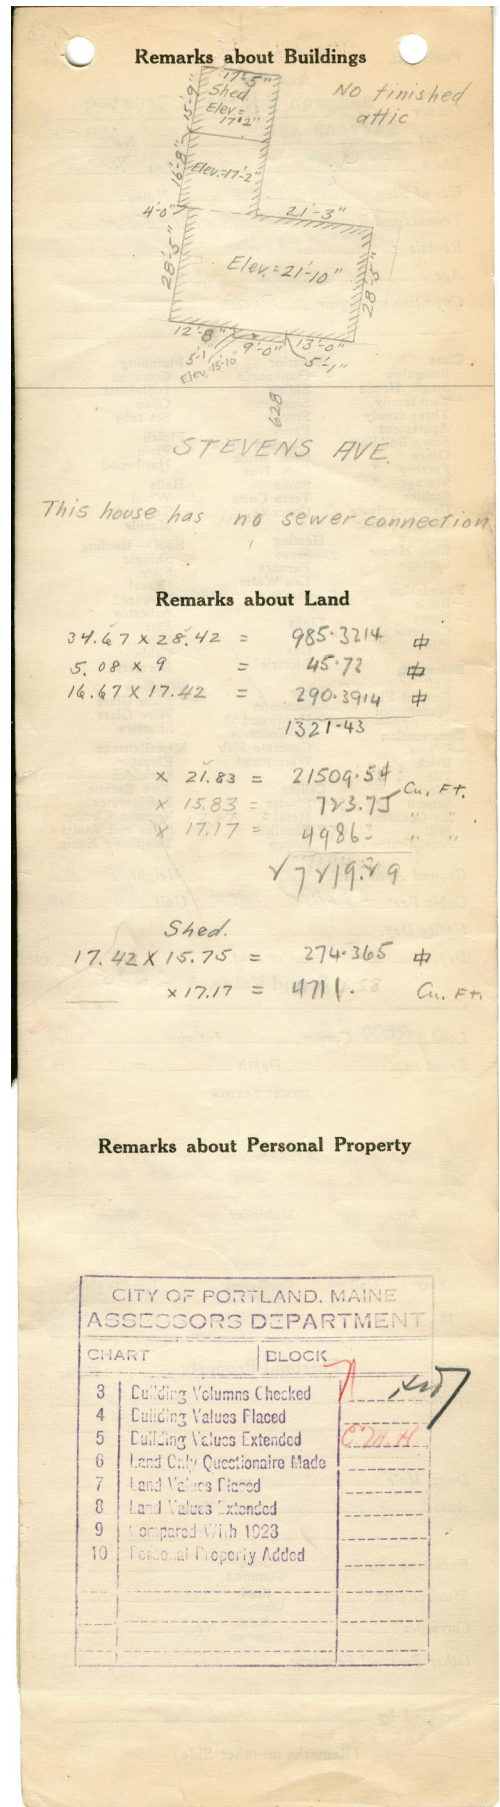 Remarks about Buildings
17'-5"
Shed
Elev.=
17'-2"
15'-9"
No finished
attic
16'-8"
Elev.=17'-2"
4'-0"
21'-3"
28'-5"
Elev.=21'-10"
28'-5"
12'-8"
9'-0"
13'-0"
5'-1"
5'-1"
Elev.=15'-10"
628
STEVENS AVE.
This house has no sewer connection
Remarks about Land
34.67 X 28.42 = 985.3214
5.08 X 9 = 45.72
16.67 X 17.42 = 290.3914
1321.43
X 21.83 = 21509.54 Cu. Ft.
X 15.83 = 723.75 " "
X 17.17 = 4986 " "
27219.29
Shed.
17.42 X 15.75 = 274.365
X 17.17 = 4711. Cu. Ft.
Remarks about Personal Property
CITY OF PORTLAND, MAINE
ASSESSORS DEPARTMENT
CHART BLOCK
3 Building Volumns Checked
4 Building Values Placed
5 Building Values Extended
6 Land Only Questionaire Made
7 Land Values Placed
8 Land Values Extended
9 Compared With 1923
10 Personal Property Added